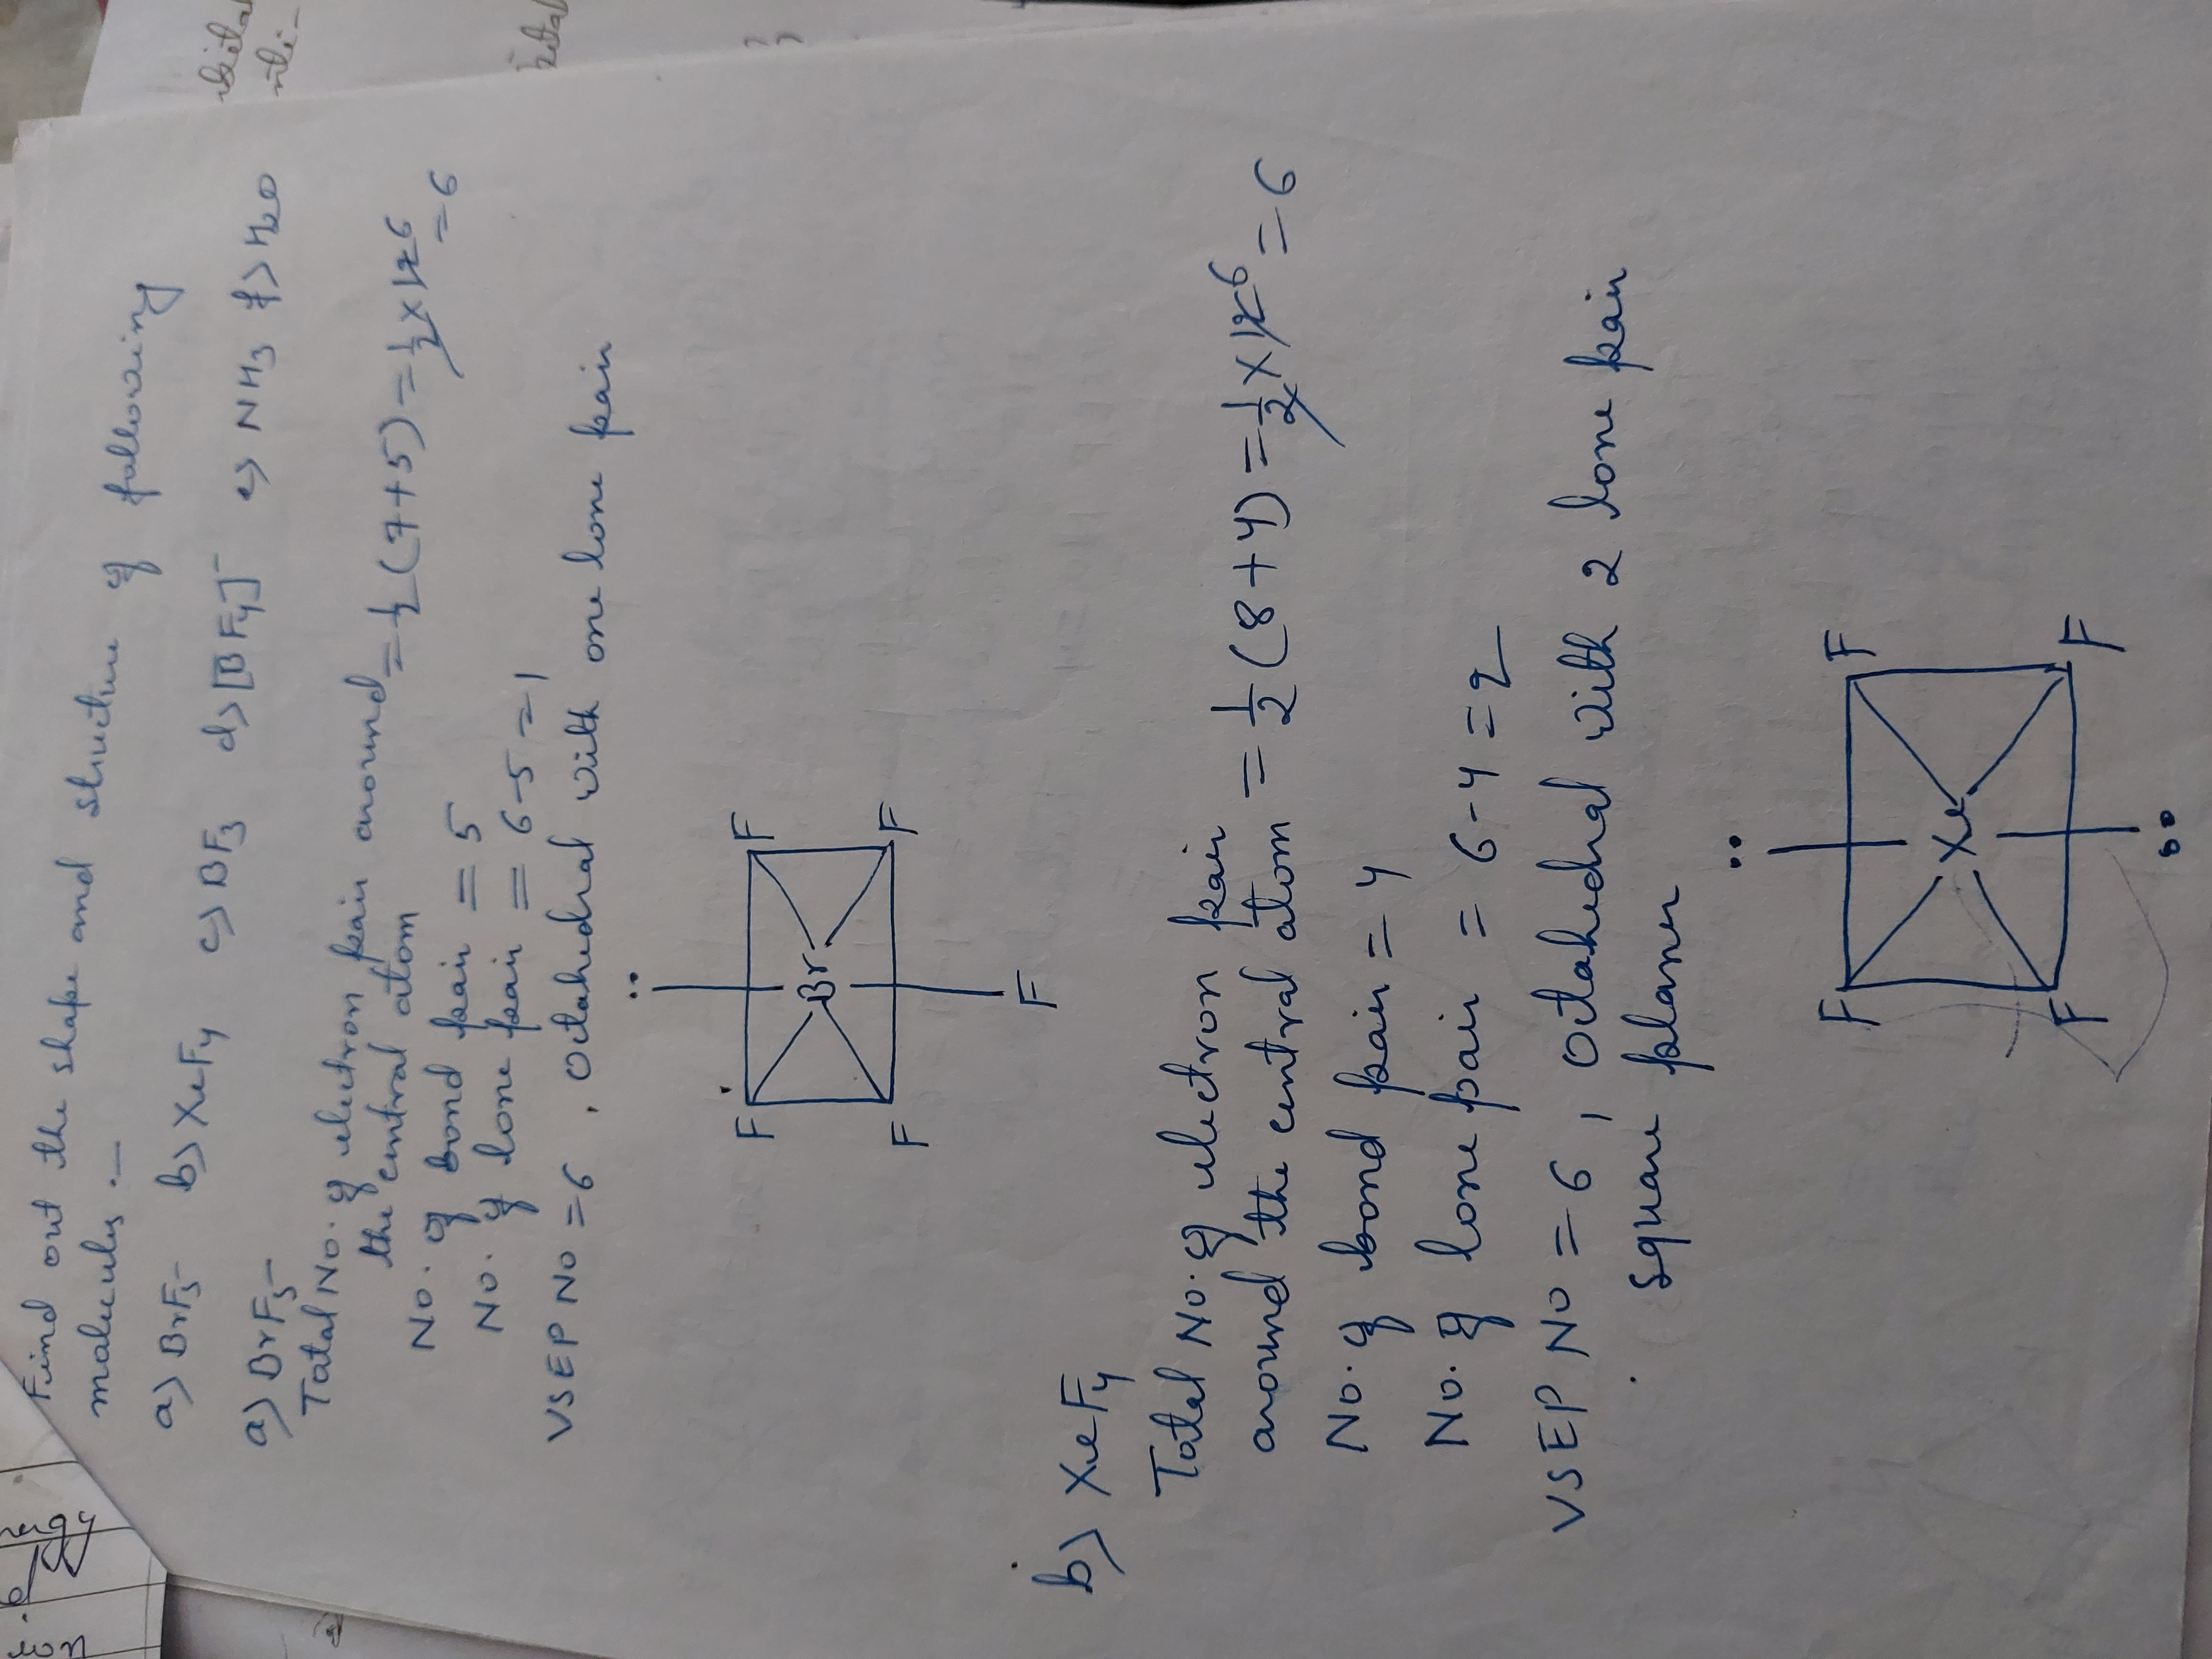 Find out the shape and structure of following
molecules :—
a) BrF5 b) XeF4 c) BF3 d) [BF4]⁻ e) NH3 f) H2O
a) BrF5
Total No. of electron pair around = 1/2 (7+5) = 1/2 × 12 6
the central atom = 6
No. of bond pair = 5
No. of lone pair = 6-5 = 1
VSEP No = 6 , octahedral with one lone pair
F F
Br
F F
F
b) XeF4
Total No. of electron pair
around the central atom = 1/2 (8+4) = 1/2 × 12 6 = 6
No. of bond pair = 4
No. of lone pair = 6-4 = 2
VSEP No = 6 , octahedral with 2 lone pair
square planer
F F
Xe
F F